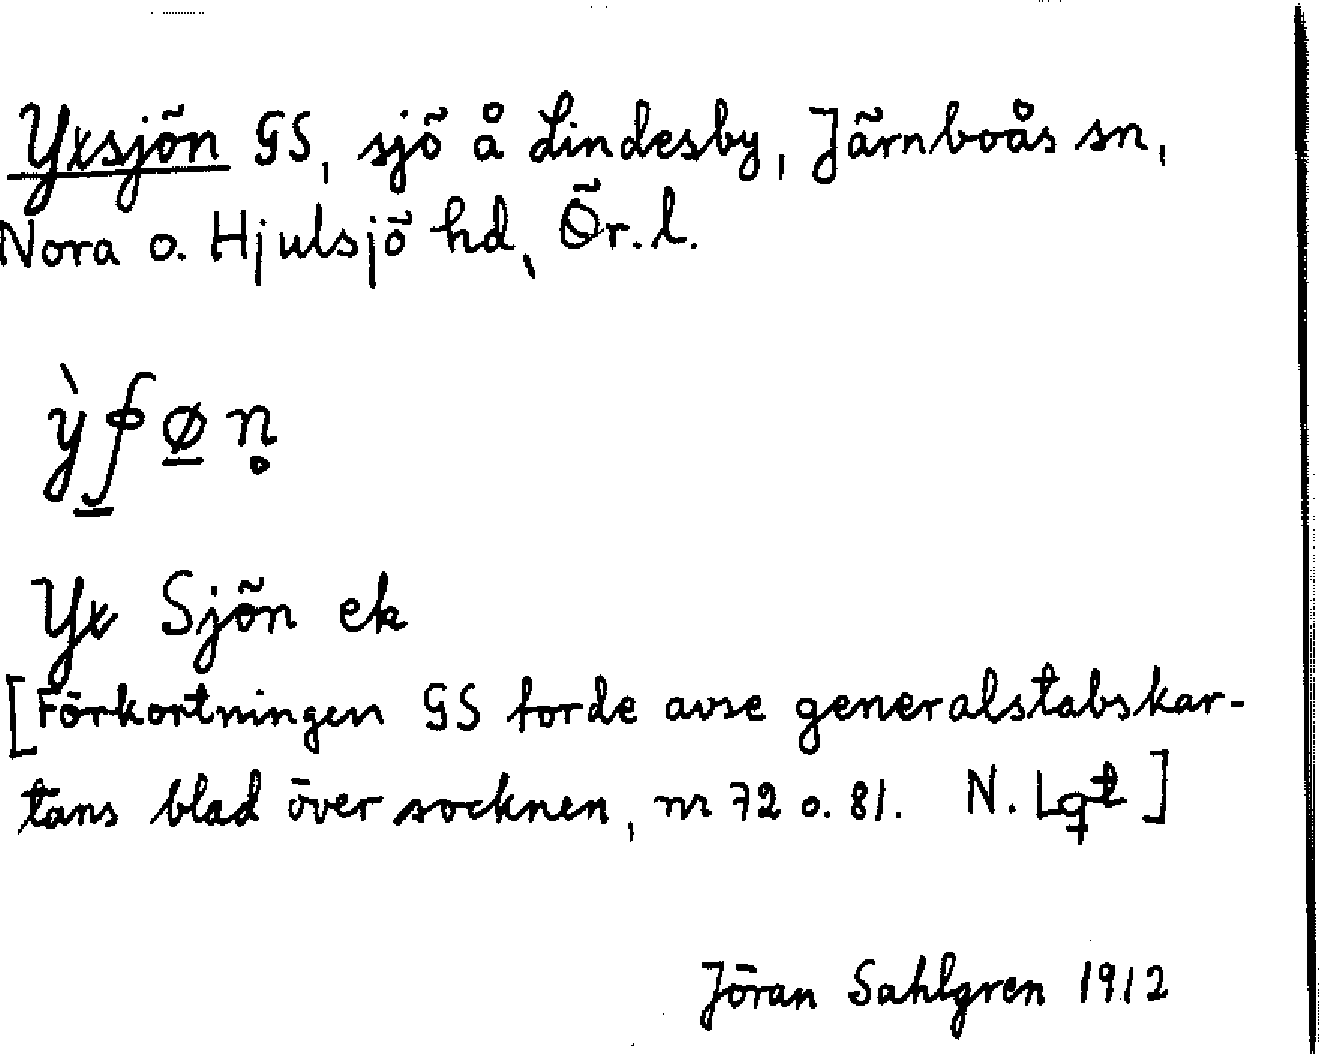 Yxsjön GS, sjö å Lindesby, Järnboås sn,
Nora o. Hjulsjö hd, Ör. l.
Yx Sjön ek
[Förkortningen GS torde avse generalstabskar-
tans blad över socknen, nr 72 o. 81. N. Lgt]
Jöran Sahlgren 1912